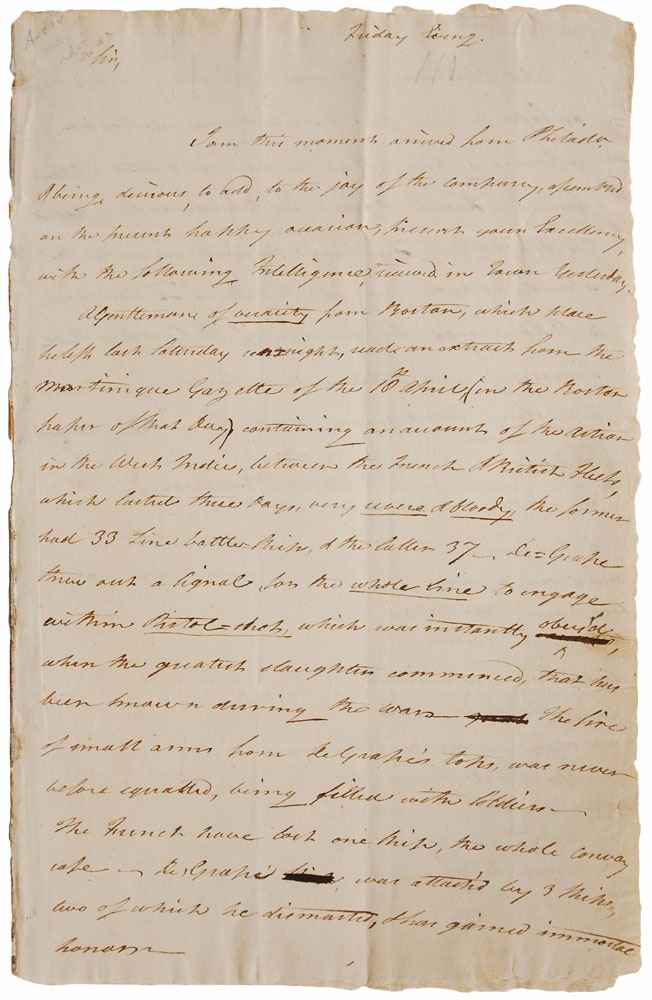 Friday Eveng.
Sir,
I am this moment arived from Philada
& being desirous, to add, to the joy of the company, assembled
on the present happy occasion, present your Excellency,
with the following Intelligence, recieved in Town Yesterday.
A Gentleman of veracity from Boston, which place
he left last Saturday sennight, reads an extract from the
Martinique Gazette of the 16th April (in the Boston
paper of that Day) containing an account of the action
in the West Indies, between the French & British Fleets,
which lasted three Days, very severe & bloody, the former
had 33 Line battle Ships, & the latter 37 — De=Grasse
threw out a Signal for the whole Line to engage
within Pistol=shot, which was instantly obey'd,
when the greatest slaughter commenced, that has
been known during the war — The fire
of small arms from DeGrasse's tops, was never
before equalled, being filled with Soldiers —
The French have lost one Ship, the whole convoy
safe — DeGrasse, was attack'd by 3 Ships,
two of which he dismasted, & has gained immortal
honor —